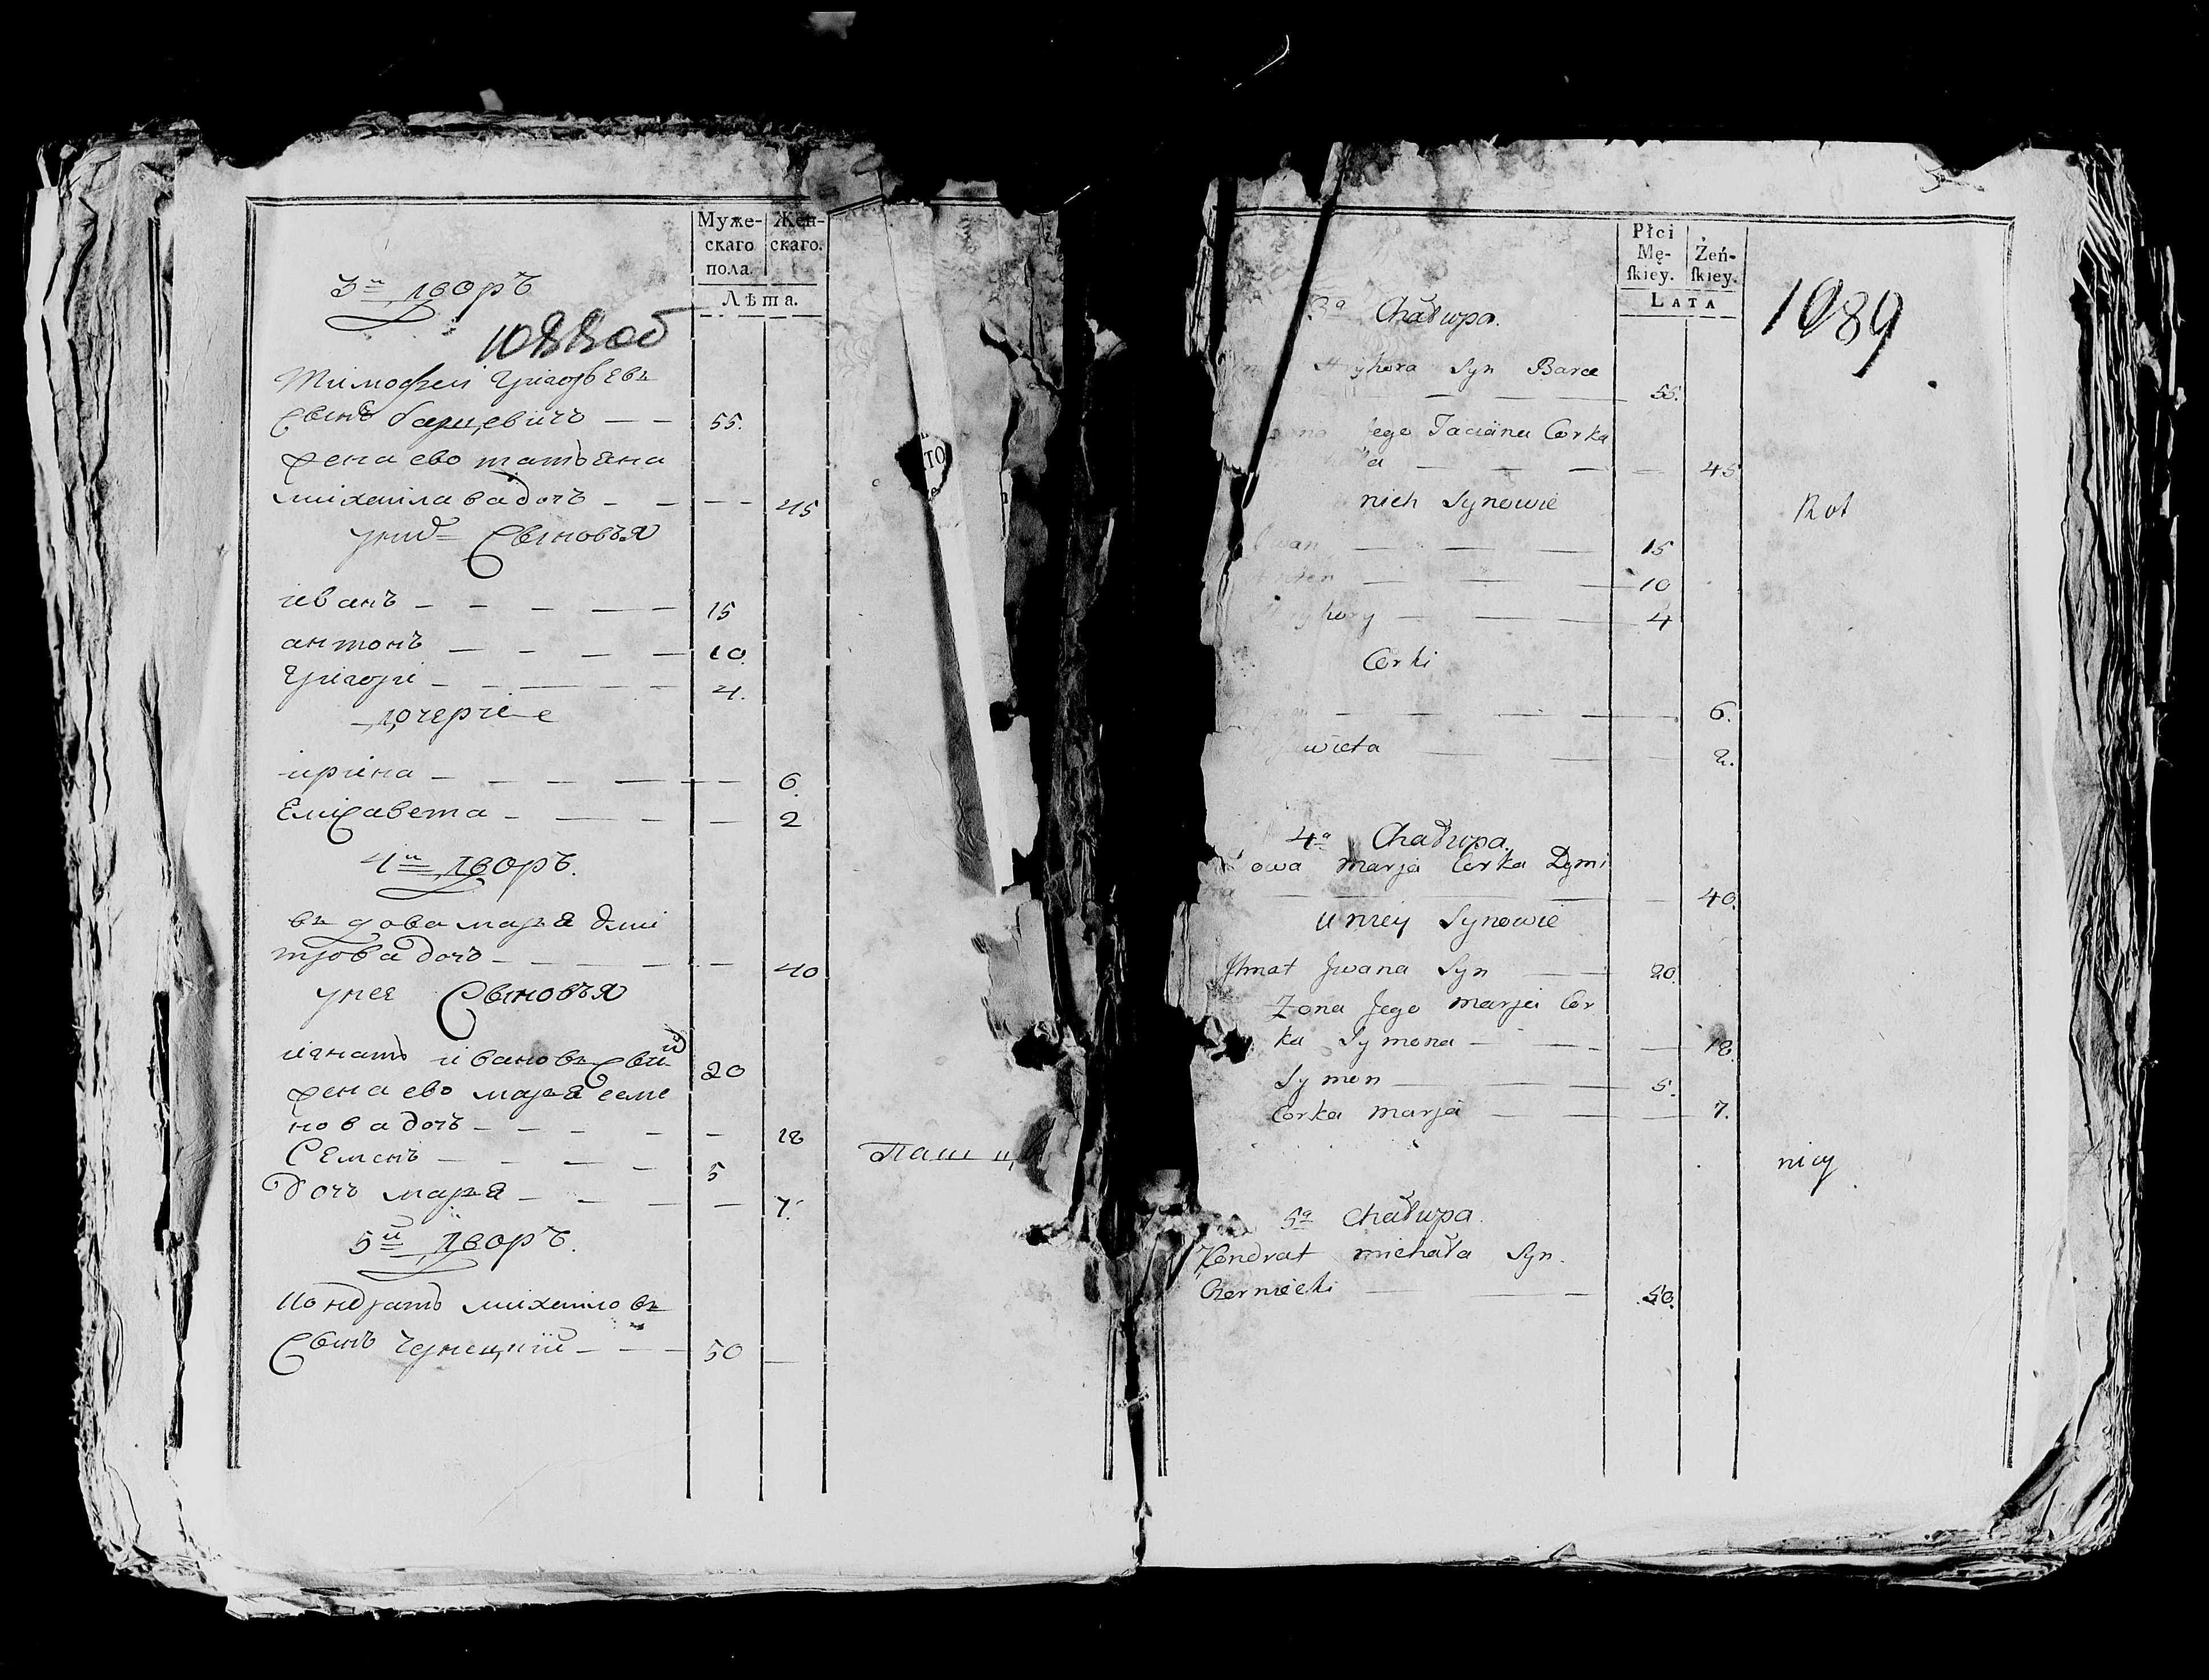 Муже-
скаго
пола.
Жен-
скаго.
Лѣта.
3й дворъ
1088об
Тимофеі Григорьевъ
Сынъ барцевичъ — — 55.
жена ево татьяна
міхаілава дочъ — — — 45
у нихъ Сыновья
іванъ — — — — 15
антонъ — — — — 10.
Григорі — — — — 4.
дочеріе
ирина — — — — 6.
Елісавета — — — — 2
4й дворъ.
въдова марья дмі
трова дочъ — — — — 40
у нее Сыновья
ігнатъ івановъ Сынъ 20
жена ево марья семе
нова дочъ — — — — 18
Семенъ — — — — 5
дочъ марья — — — — 7.
5й дворъ.
Кондратъ міхаіловъ
Сынъ Чернецкий — — — 50 —
Паш
ТО
Płci
Mę-
ſkiey.
Żeń-
ſkiey.
LATA
1089
3a Chałupa.
hora Syn Barce
— — — 55.
Jego Taciana Corka
— — — — 45
nich Synowie
Rot
Iwan — — — 15
— — — 10
hory — — — 4
Corki
— — — — 6.
wieta — — — 2.
4a Chałupa.
owa Marja Corka Dymi
— — — 40.
u niey Synowie
Ihnat Jwana Syn — 20.
Zona Jego Marja Cor
ka Symona — — — 18.
Symon — — — 5.
Corka Marja — — — 7.
nicy
5a Chałupa.
Kondrat Michała Syn.
Czerniecki — — — 50.